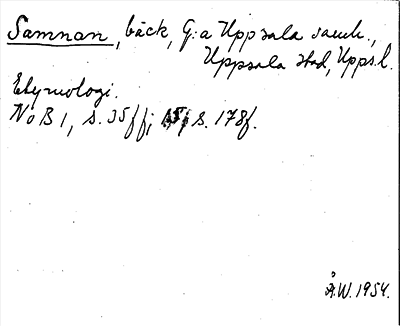 Samnan, bäck, G:a Uppsala samh.,
Uppsala stad, Uppl.
Etymologi.
NoB 1, s. 35ff; 15, s. 178f.
Å.W. 1954.